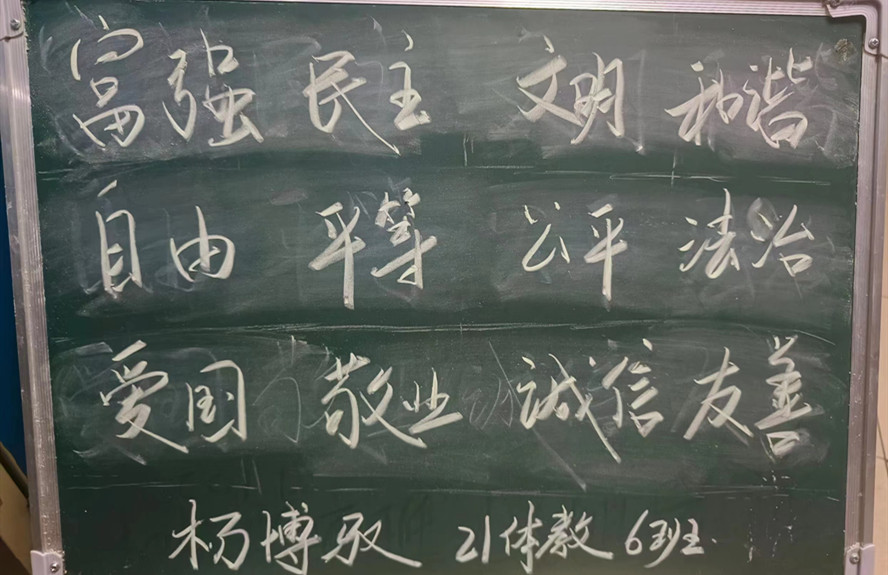 富强 民主 文明 和谐
自由 平等 公平 法治
爱国 敬业 诚信 友善
杨博驭 21体教 6班